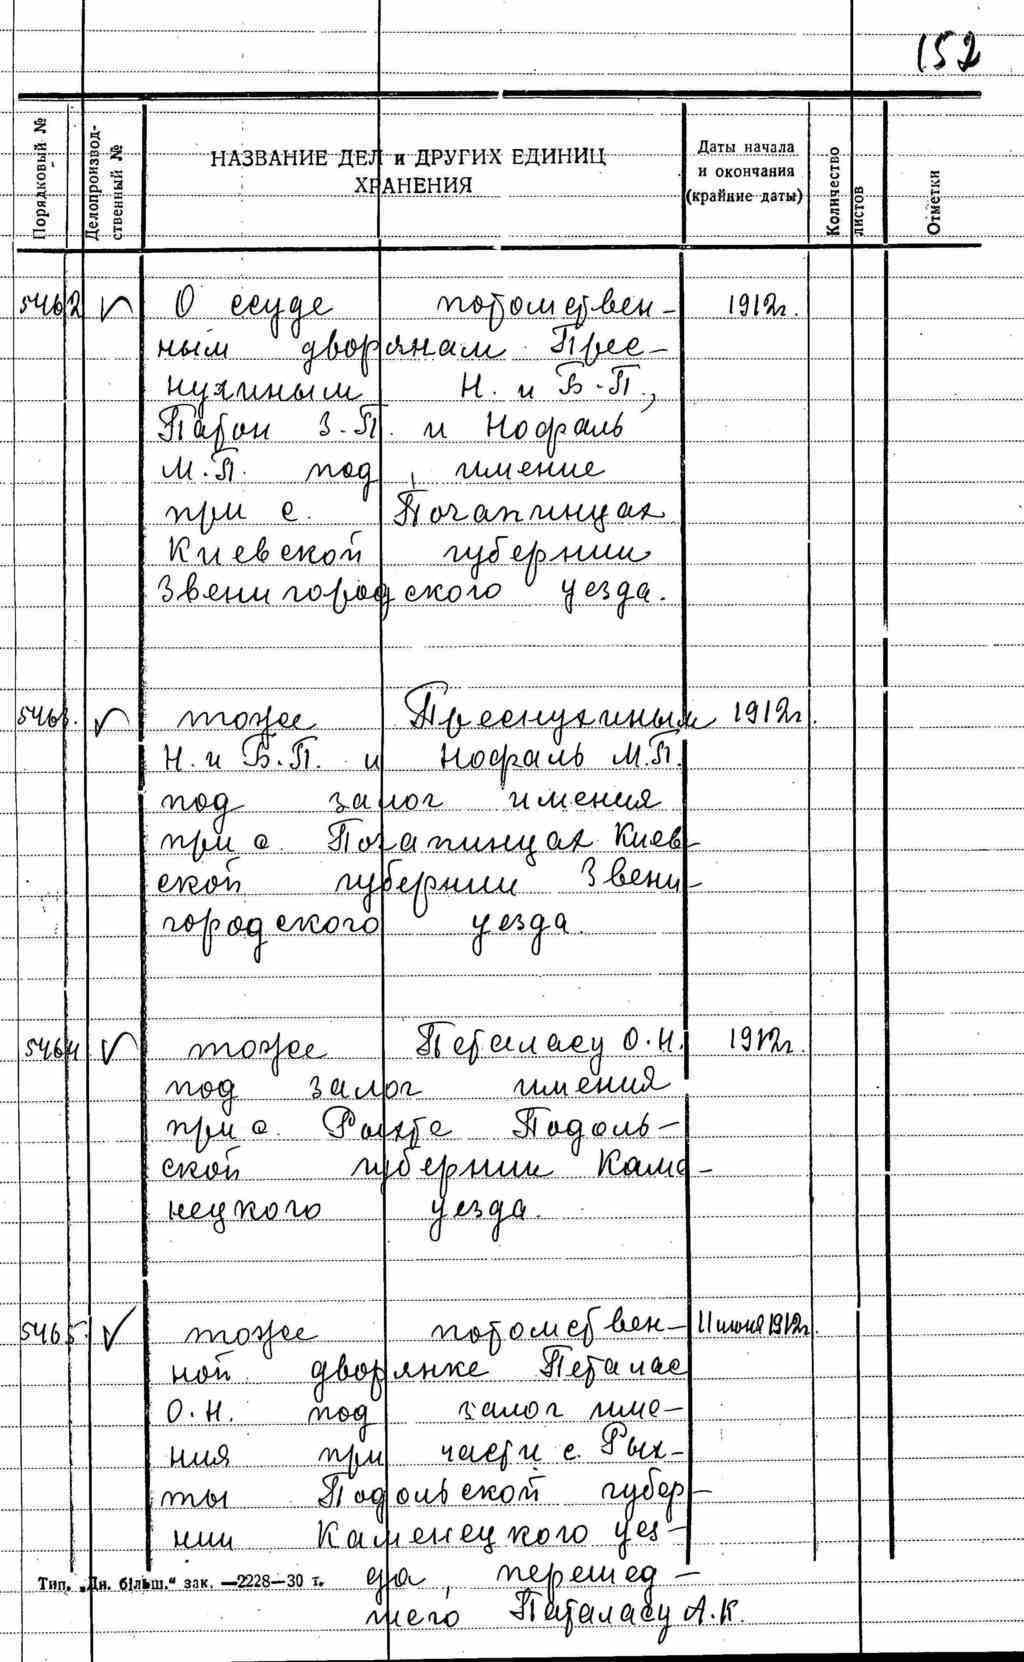 152
Порядковый №
Делопроизвод-
ственный №
НАЗВАНИЕ ДЕЛ и ДРУГИХ ЕДИНИЦ
ХРАНЕНИЯ
Даты начала
и окончания
(крайние даты)
Количество
листов
Отметки
5462 О ссуде потомствен- 1912г.
ным дворянам Прес-
нухиным Н. и В.П.,
Патон З.П. и Нофаль
М.П. под имение
при с. Почапинцах
Киевской губернии
Звенигородского уезда.
5463. тоже Преснухиным 1912г.
Н. и В.П. и Нофаль М.П.
под залог имения
при с. Почапинцах Киев-
ской губернии Звени-
городского уезда.
5464 тоже Петаласу О.Н. 1912г.
под залог имения
при с. Рыхте Подоль-
ской губернии Каме-
нецкого уезда.
5465. тоже потомствен- 11 июня 1912г.
ной дворянке Петалас
О.Н. под залог име-
ния при части с. Рых-
ты Подольской губер-
нии Каменецкого уез-
да, перешед-
шего Паталасу А.К.
Тип. „Дн. більш.“ зак. —2228—30 т.